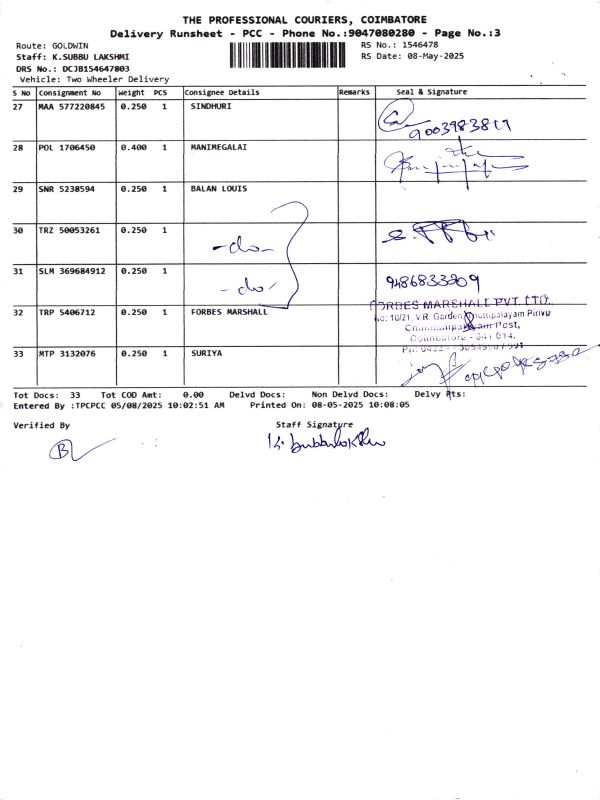 THE PROFESSIONAL COURIERS, COIMBATORE
Delivery Runsheet - PCC - Phone No.:9047080280 - Page No.:3
Route: GOLDWIN RS No.: 1546478
Staff: K.SUBBU LAKSHMI RS Date: 08-May-2025
DRS No.: DCJB154647803
Vehicle: Two Wheeler Delivery
S No Consignment No Weight PCS Consignee Details Remarks Seal & Signature
27 MAA 577220845 0.250 1 SINDHURI
9003983819
28 POL 1706450 0.400 1 MANIMEGALAI
29 SNR 5238594 0.250 1 BALAN LOUIS
30 TRZ 50053261 0.250 1 -do-
31 SLM 369684912 0.250 1 -do- 9486833209
32 TRP 5406712 0.250 1 FORBES MARSHALL FORBES MARSHALL PVT. LTD.
No: 10/21, V.R. Garden Pirivu
Post,
Coimbatore - 641 014.
33 MTP 3132076 0.250 1 SURIYA
Tot Docs: 33 Tot COD Amt: 0.00 Delvd Docs: Non Delvd Docs: Delvy Pts:
Entered By :TPCPCC 05/08/2025 10:02:51 AM Printed On: 08-05-2025 10:08:05
Verified By Staff Signature
K. Subbulakshmi